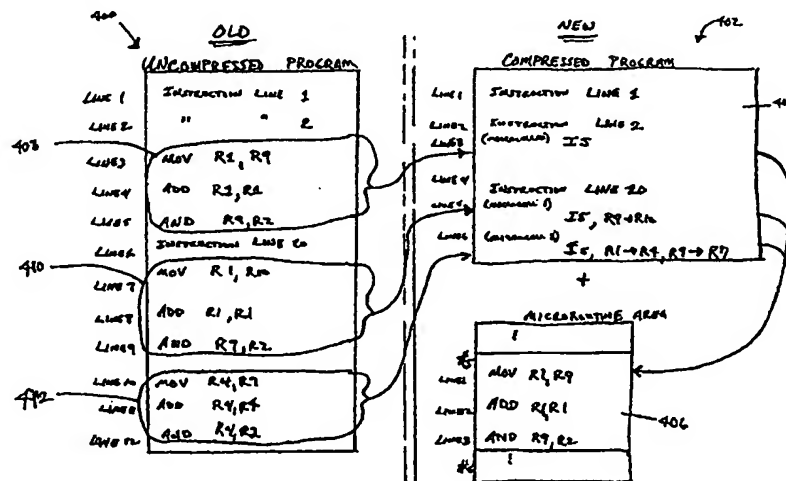 400
OLD
UNCOMPRESSED PROGRAM
LINE 1 INSTRUCTION LINE 1
LINE 2 " " 2
408
LINE 3 MOV R1, R9
LINE 4 ADD R1, R1
LINE 5 AND R9, R2
LINE 6 INSTRUCTION LINE 20
410
LINE 7 MOV R1, R10
LINE 8 ADD R1, R1
LINE 9 AND R9, R2
412
LINE 10 MOV R4, R7
LINE 11 ADD R4, R4
LINE 12 AND R4, R2
NEW
402
COMPRESSED PROGRAM
LINE 1 INSTRUCTION LINE 1
LINE 2 INSTRUCTION LINE 2
LINE 3 I5
LINE 4 INSTRUCTION LINE 20
LINE 5
I5, R9→R10
LINE 6
I5, R1→R4, R9→R7
+
MICROROUTINE AREA
LINE 1 MOV R1, R9
LINE 2 ADD R1, R1
406
LINE 3 AND R9, R2